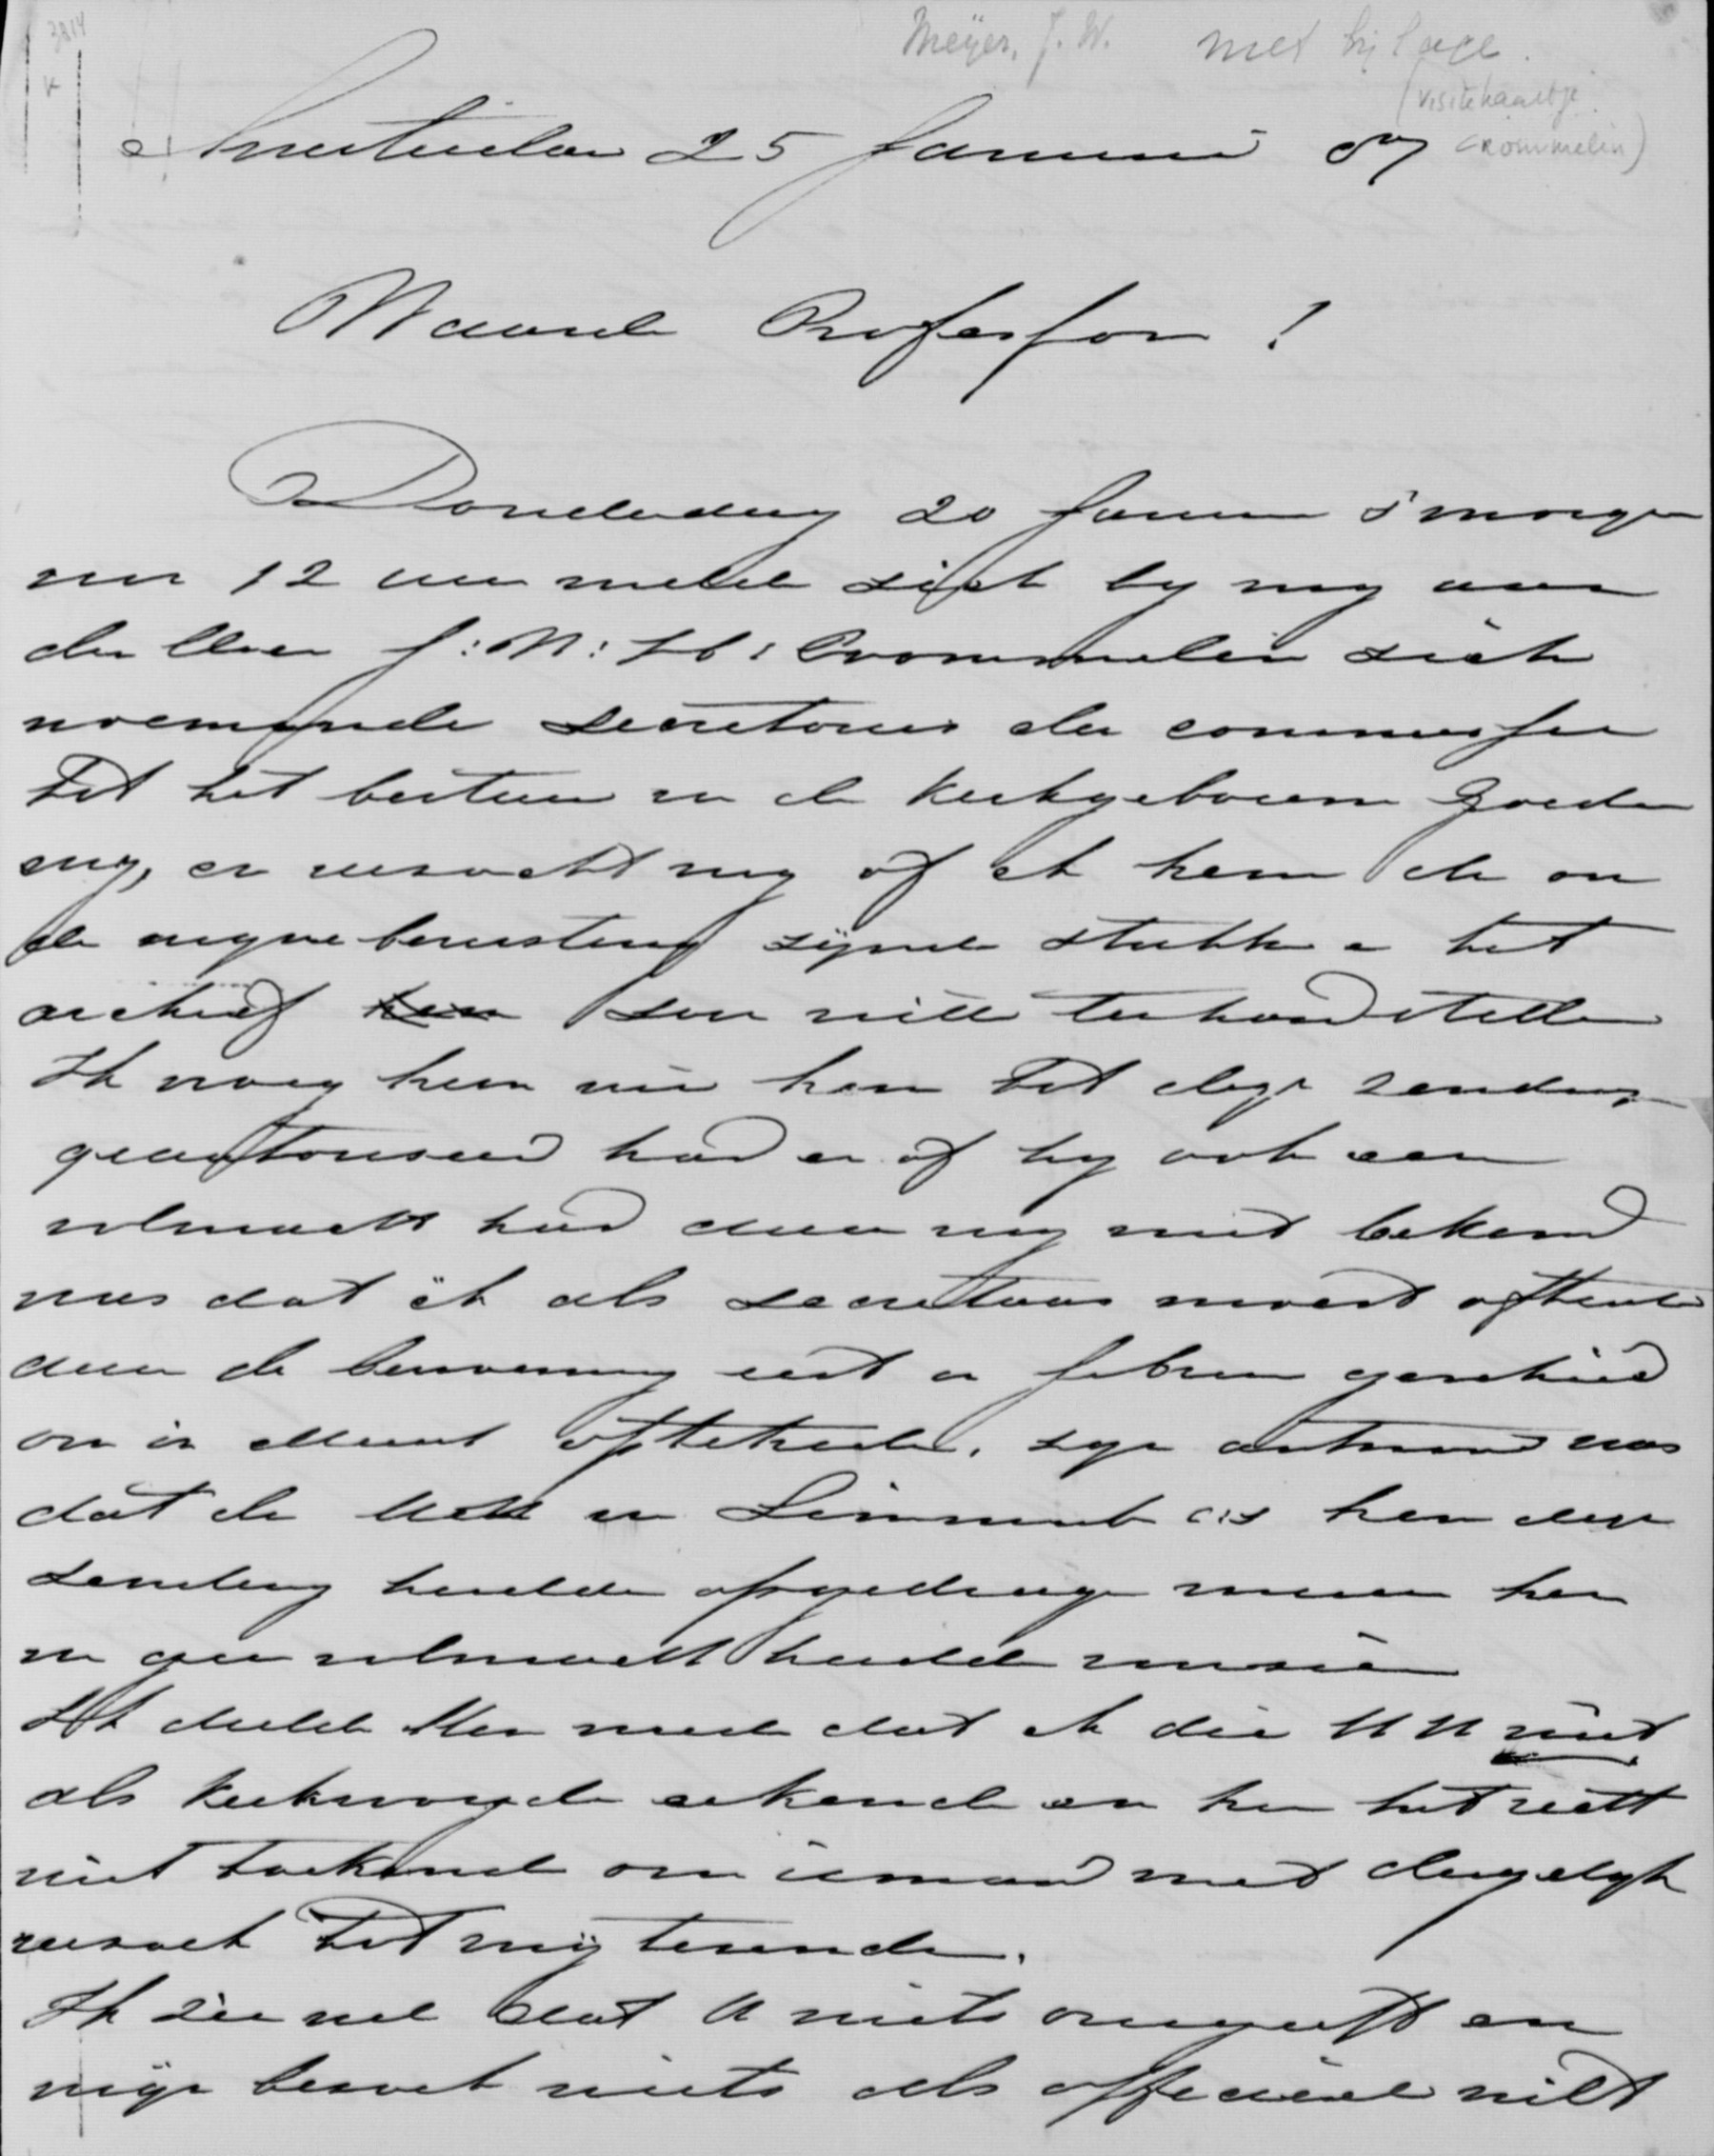 3814
Meijer, J. W. met bijlage.
(visitekaartje
Crommelin)
Amsterdam 25 Januari 87
Waarde Professor!
Donderdag 20 Januari 's morgen
om 12 uur melde zich by my aan
der Heer J: M: H: Crommelin zich
noemende secretaris der commissie
tot het bestuur van de kerkgebouwen Goeder
enz, en verzocht my of ik hem de on
der myne berusting zijnde stukken en het
archief zou wille terhandstelle
Ik vroeg hem wie hem tot deze zending
geautoriseerd had en of hy ook een
volmacht had daar my niet bekend
was dat ik als secretaris moest aftreden
daar de benoeming eerst in Febru geschied
om in Maart aftetreden. zyn antwoord was
dat de Heer van cs hem deze
zending hadde opgedragen maar hem
van geen volmacht hadde voorzien
Ik deelde Hem mede dat ik die HH niet
als kerkvoogde erkende en hun het recht
niet toekende om iemand met dergelyk
verzoek tot mij tezenden.
Ik zie wel dat U niets omgeeft en
mijn bezoek niets als officieel wilt